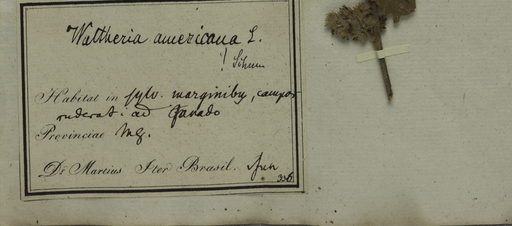 Waltheria americana L.
! Schum
Habitat in sylv. marginibus, campos
ruderat. ad
Provinciae
Dr. Martius Iter Brasil. Jun
336